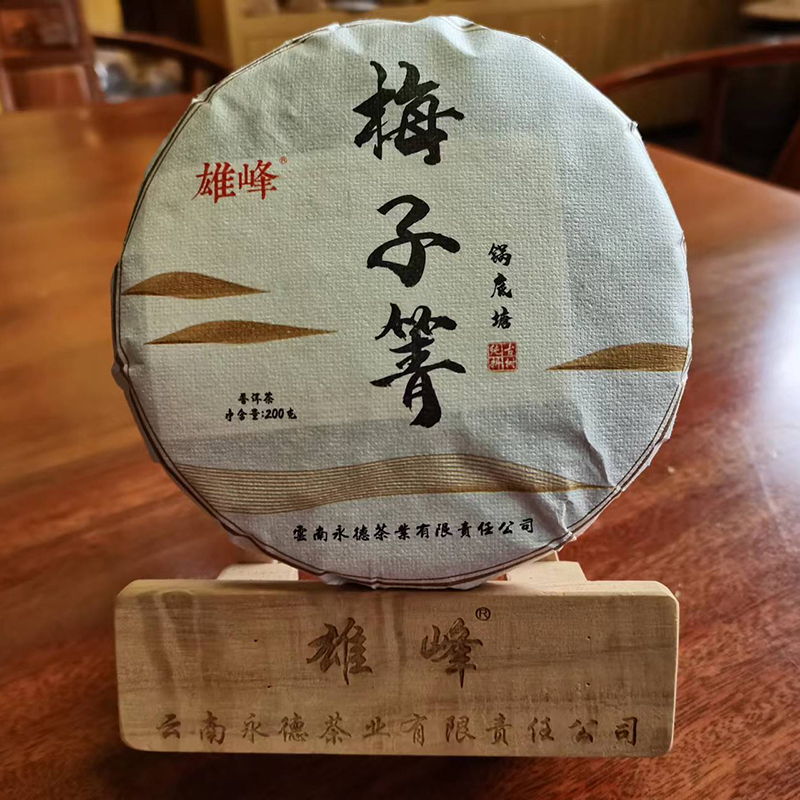 雄峰®
梅子箐
锅底塘
古树
纯料
普洱茶
净含量:200克
雲南永德茶業有限責任公司
雄峰®
云南永德茶业有限责任公司